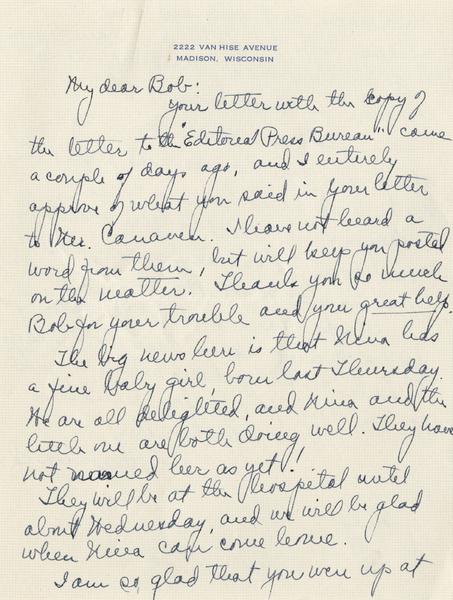 2222 VAN HISE AVENUE
MADISON, WISCONSIN
My dear Bob:
Your letter with the copy of
the letter to the "Editorial Press Bureau" came
a couple of days ago, and I entirely
approve of what you said in your letter
to Mr. Canaven. I have not heard a
word from them, but will keep you posted
on the matter. Thank you so much
Bob for your trouble and your great help.
The big news here is that Nina has
a fine baby girl, born last Thursday.
We are all delighted, and Nina and the
little one are both doing well. They have
not named her as yet!
They will be at the hospital until
about Wednesday, and we will be glad
when Nina can come home.
I am so glad that you were up at